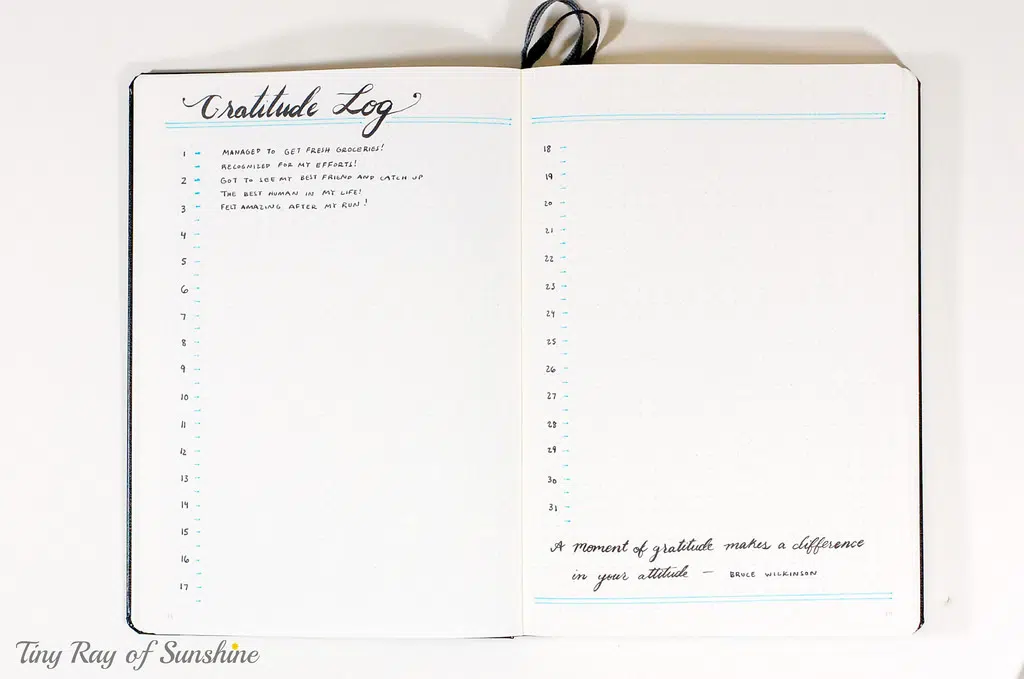 Gratitude Log
1 - MANAGED TO GET FRESH GROCERIES!
- RECOGNIZED FOR MY EFFORTS!
2 - GOT TO SEE MY BEST FRIEND AND CATCH UP
- THE BEST HUMAN IN MY LIFE!
3 - FELT AMAZING AFTER MY RUN!
-
4 -
-
5 -
-
6 -
-
7 -
-
8 -
-
9 -
-
10 -
-
11 -
-
12 -
-
13 -
-
14 -
-
15 -
-
16 -
-
17 -
-
18 -
-
19 -
-
20 -
-
21 -
-
22 -
-
23 -
-
24 -
-
25 -
-
26 -
-
27 -
-
28 -
-
29 -
-
30 -
-
31 -
-
A moment of gratitude makes a difference
in your attitude — BRUCE WILKINSON
Tiny Ray of Sunshine